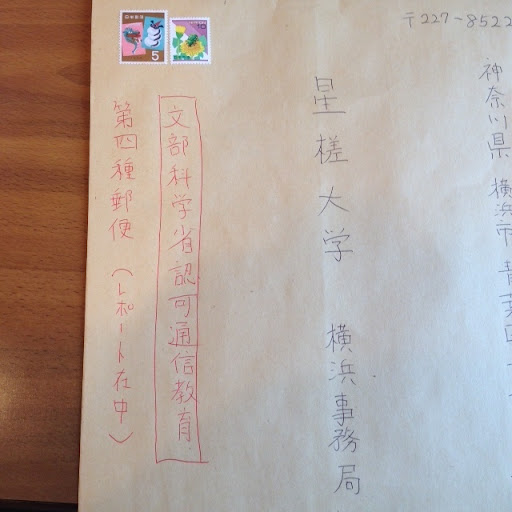 〒227-8522
神奈川県 横浜市 青葉区
星槎大学 横浜事務局
文部科学省認可通信教育
第四種郵便(レポート在中)
日本郵便
5
10